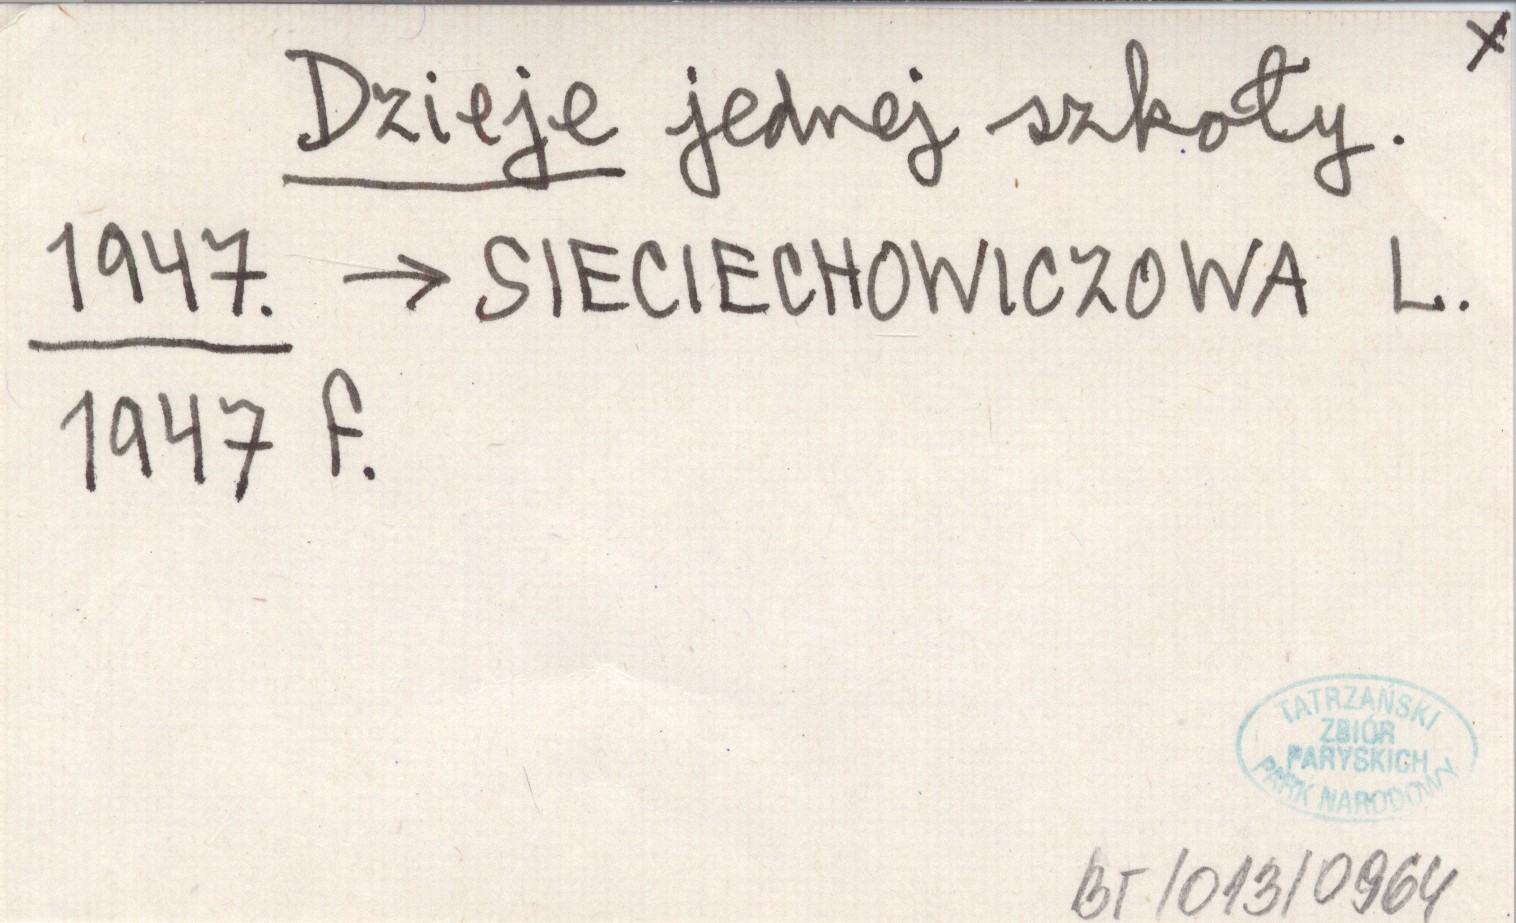 x
Dzieje jednej szkoły.
1947. → SIECIECHOWICZOWA L.
1947 f.
TATRZAŃSKI
ZBIÓR
PARYSKICH
PARK NARODOWY
BT/013/0964